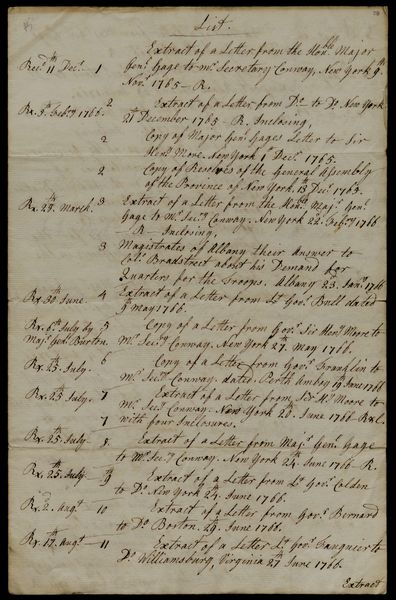 List.
Extract of a Letter from the Hon.ble Major
Rec.d 11th Dec.r 1 Gen.l Gage to Mr Secretary Conway, New York 9th
Nov.r 1765 - R.
Rx. 3d Feb.ry 1766. 2 Extract of a Letter from D.o to D.o New York
21st December 1765 - R. Inclosing,
2 Copy of Major Gen.l Gages Letter to Sir
Hen.y More. New York 1st Dec.r 1765.
2 Copy of Resolves of the General Assembly
of the Province of New York. 13 Dec.r 1765.
Rx. 28. March. 3 Extract of a Letter from the Hon.ble Maj.r Gen.l
Gage to Mr Sec.ry Conway. New York 22d Feb.ry 1766
- R - Inclosing.
3 Magistrates of Albany their Answer to
Col.l Bradstreet about his Demand for
Quarters for the Troops. Albany 23. Jan.ry 1766
Rx 30th June. 4 Extract of a Letter from Lt Gov.r Bull dated
9th May 1766.
Rx. 6th July by 5 Copy of a Letter from Gov.r Sir Hen.y Moore to
Maj.r Gen.l Burton. Mr Sec.ry Conway. New York 27th May 1766.
Rx. 23. July. 6 Copy of a Letter from Gov.r Franglin to
Mr Sec.ry Conway. dated Perth Amboy 19th June 1766
Rx. 23. July. 7 Extract of a Letter from Sir H.y Moore to
Mr Sec.ry Conway New York 20. June 1766.
7 with four Inclosures.
Rx. 25. July 8. Extract of a Letter from Maj.r Gen.l Gage
to Mr Sec.ry Conway. New York 24th June 1766 - R.
Rx. 25. July 9 Extract of a Letter from Lt Gov.r Colden
to D.o New York 24. June 1766.
Rx. 2. Aug.t 10 Extract of a Letter from Gov.r Bernard
to D.o Boston. 29. June 1766.
Rx. 17th Aug.t 11 Extract of a Letter Lt Gov.r Fauquier to
D.o Williamsburg, Virginia 27 June 1766.
Extract